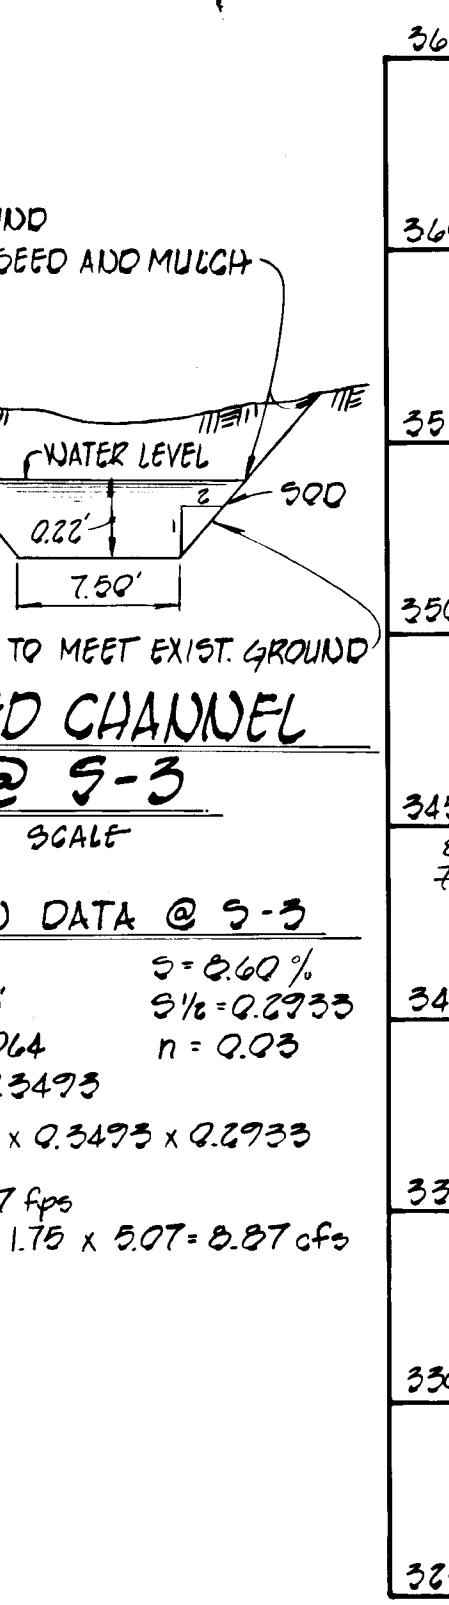 36
UND
SEED AND MULCH
360
WATER LEVEL
35
2
SOD
1
0.22'
7.50'
350
TO MEET EXIST. GROUND
D CHANNEL
@ S-3
345
SCALE
DATA @ S-3
S = 8.60 %
S 1/2 = 0.2933
34
064
n = 0.03
.3493
x 0.3493 x 0.2933
33
7 fps
1.75 x 5.07 = 8.87 cfs
330
32